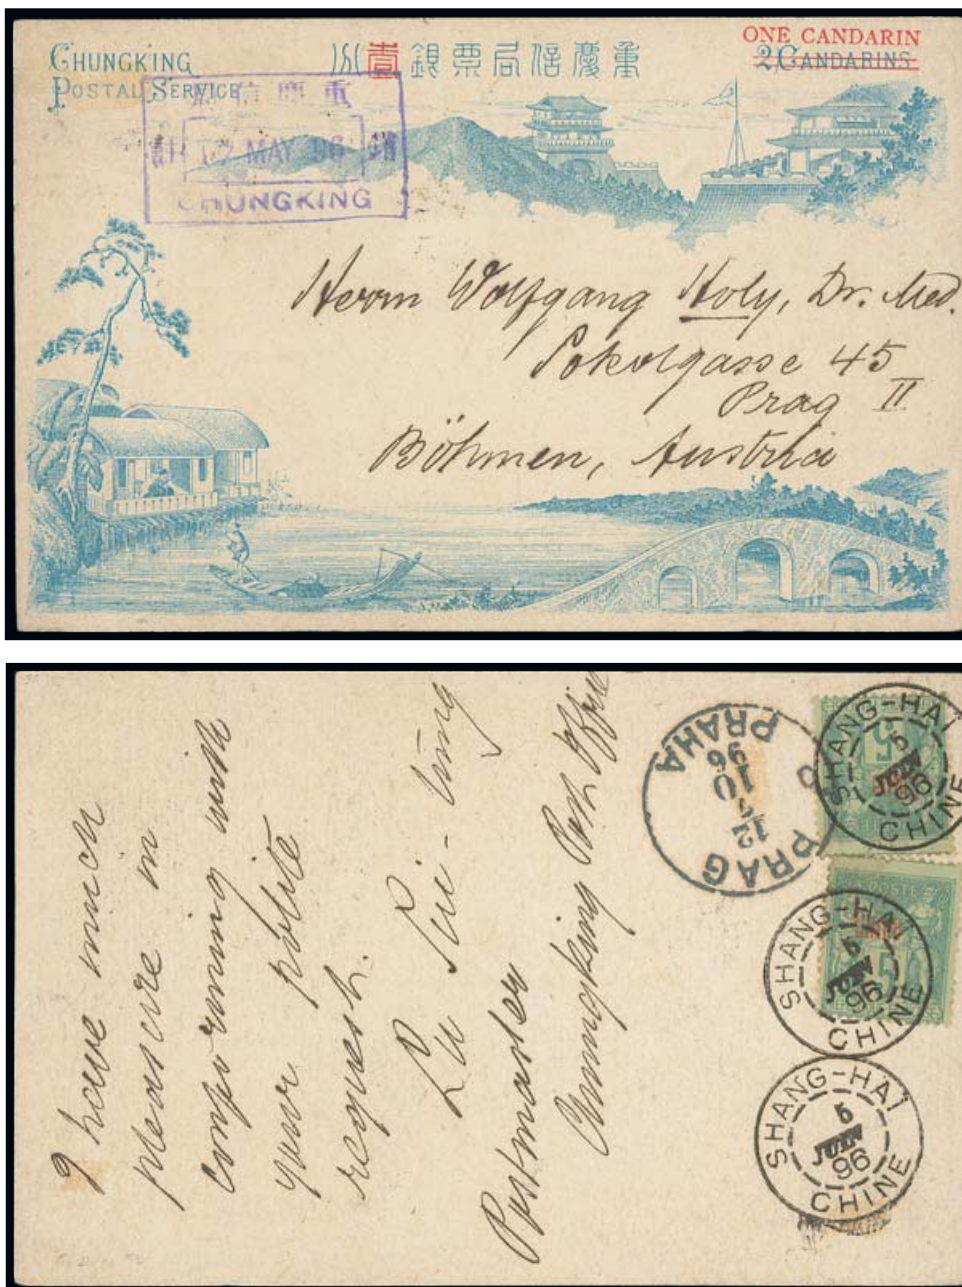 CHUNGKING
POSTAL SERVICE
重慶信局票銀壹分
ONE CANDARIN
2 CANDARINS
重慶信
17 MAY 96
CHUNGKING
Herrn Wolfgang Holy, Dr. Med.
Sokolgasse 45
Prag II
Böhmen, Austria
I have much
pleasure in
conforming with
your polite
request.
Postmaster
Chungking Post Office
PRAG
12
7
10
96
PRAHA
SHANG-HAI
5
JUIN
96
CHINE
5
POSTE
SHANG-HAI
5
JUIN
96
CHINE
5
SHANG-HAI
5
JUIN
96
CHINE